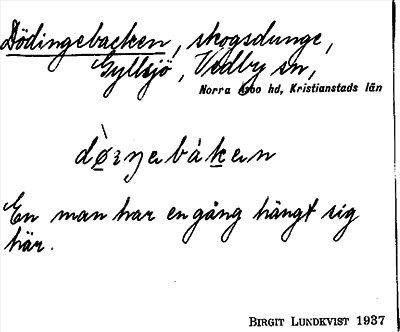 Dödingebacken, skogsdunge,
Gyllsjö, Vedby sn,
Norra Åsbo hd, Kristianstads län
En man har en gång hängt sig
här.
BIRGIT LUNDKVIST 1937